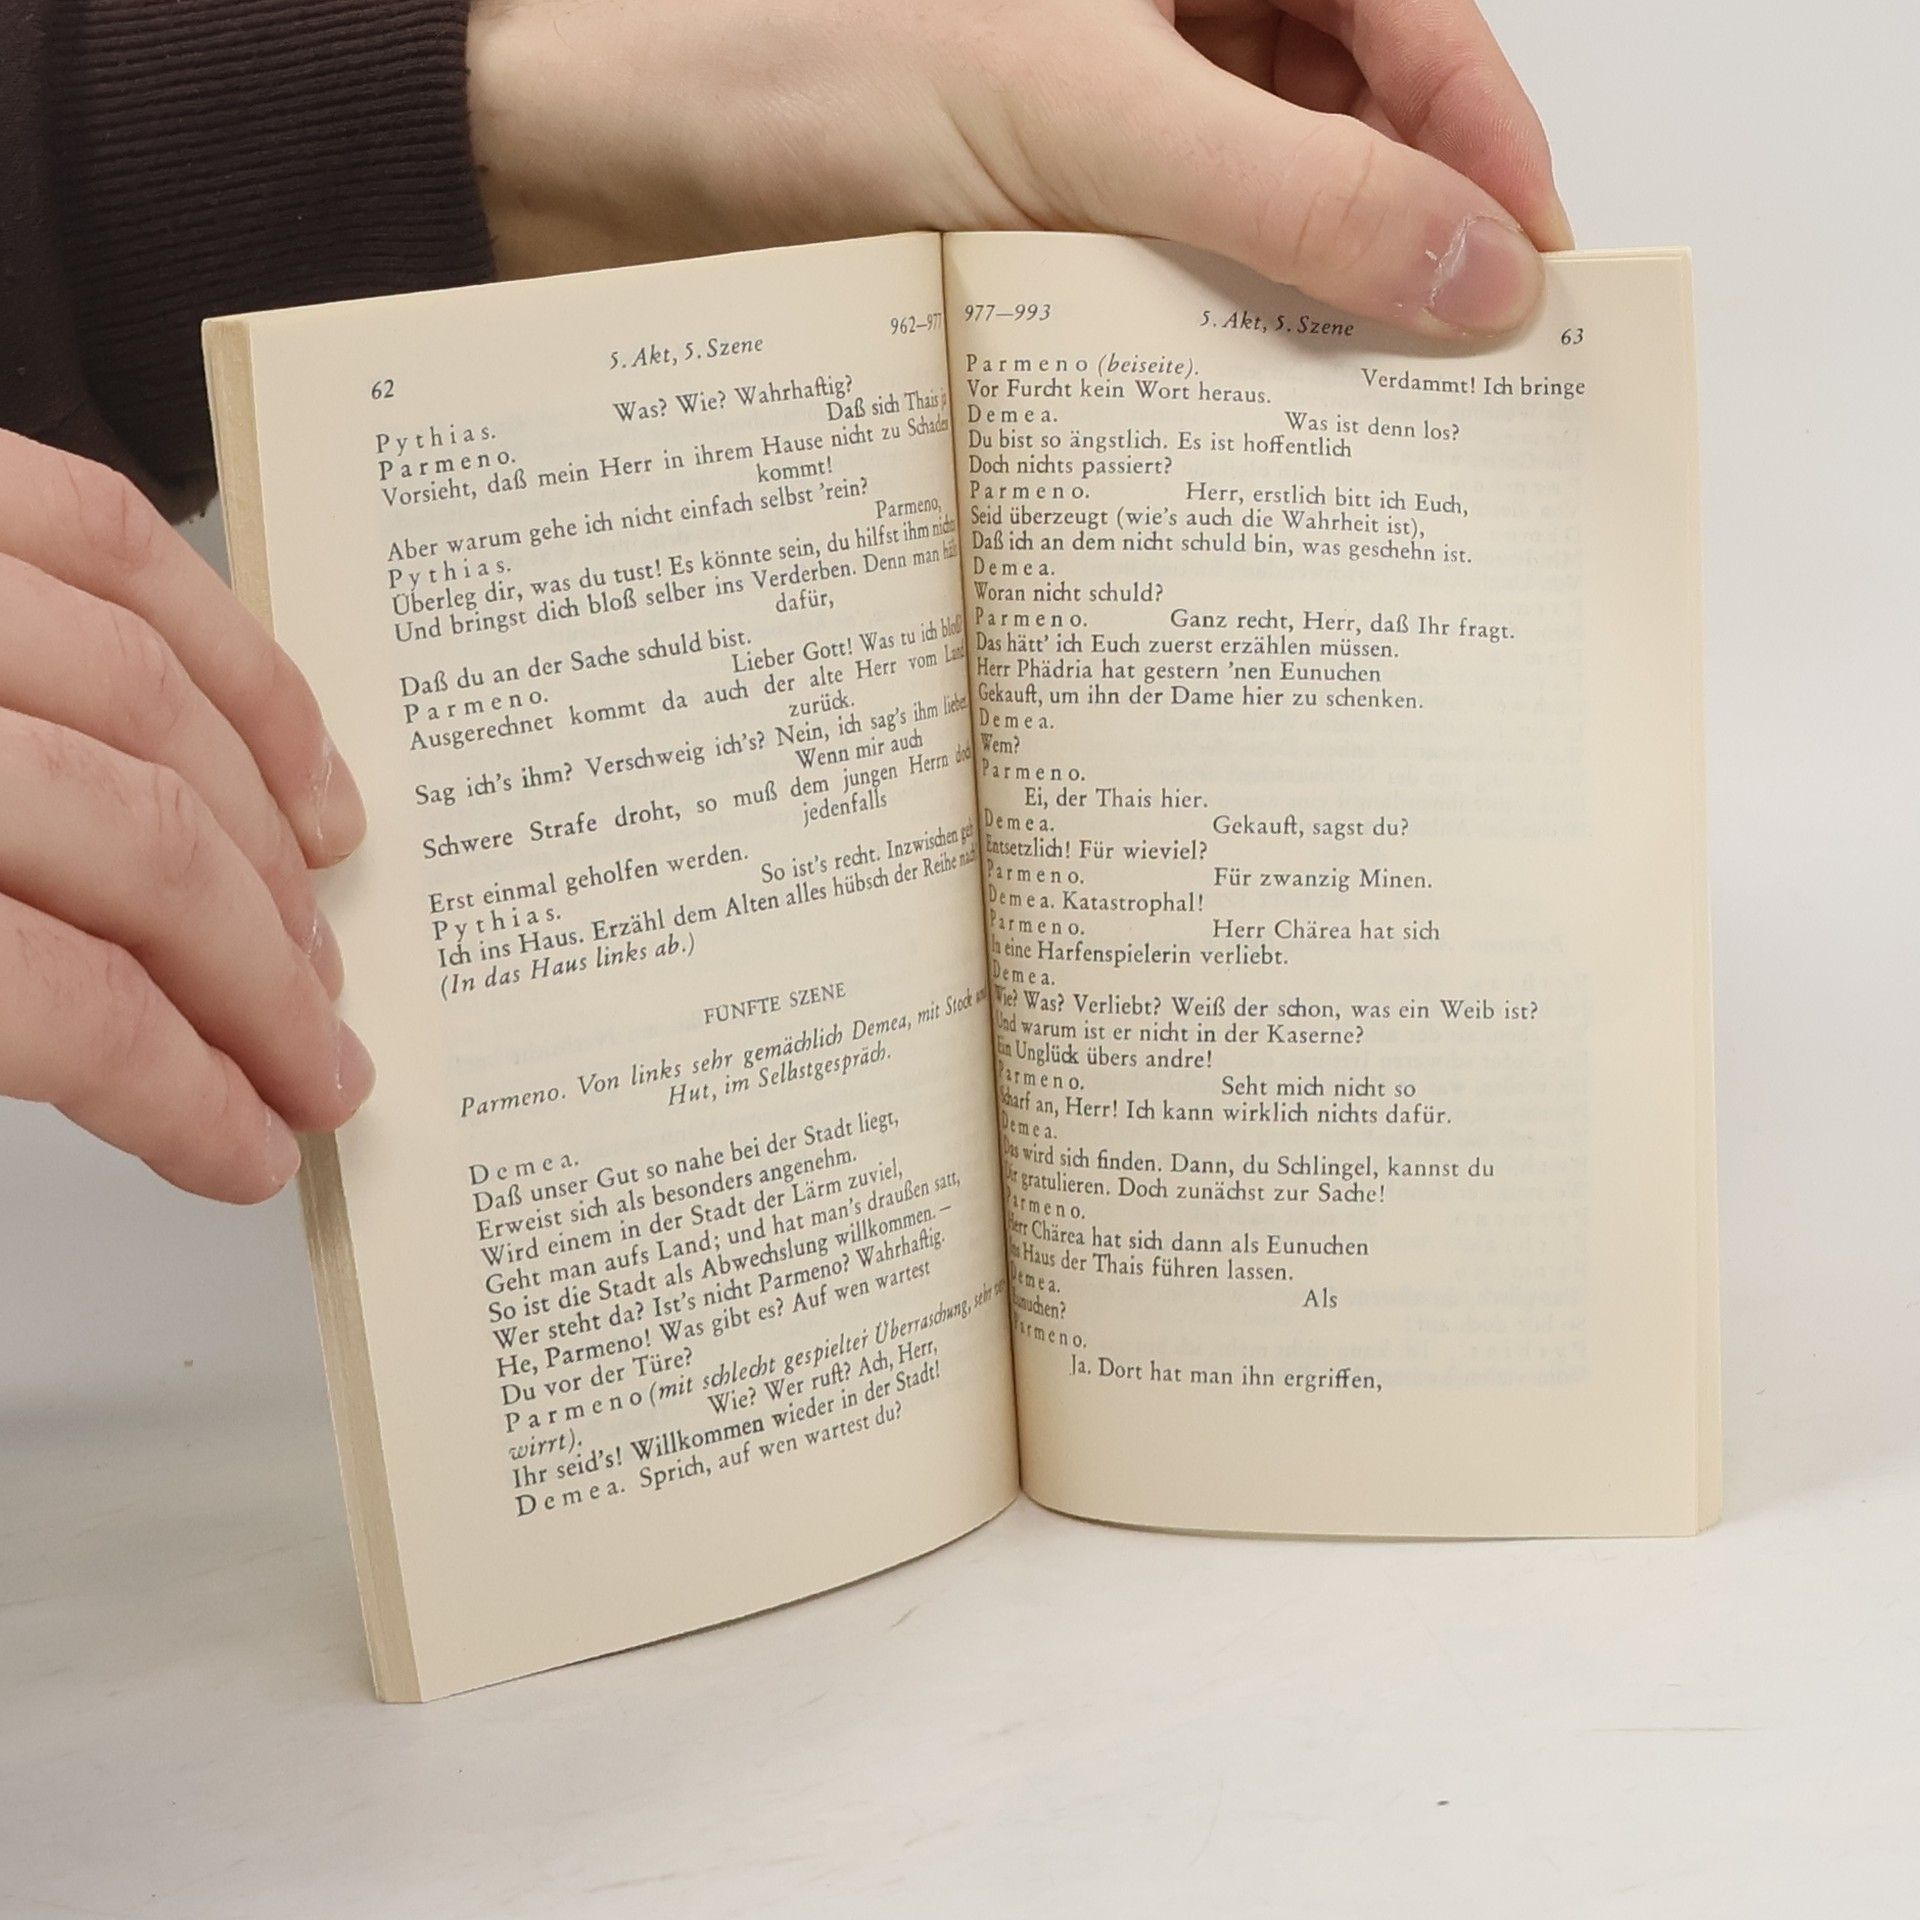 62
5. Akt, 5. Szene
962—977
Pythias. Was? Wie? Wahrhaftig?
Parmeno. Daß sich Thais
Vorsieht, daß mein Herr in ihrem Hause nicht zu Schaden
kommt!
Aber warum gehe ich nicht einfach selbst ’rein?
Pythias. Parmeno,
Überleg dir, was du tust! Es könnte sein, du hilfst ihm nichts
Und bringst dich bloß selber ins Verderben. Denn man
dafür,
Daß du an der Sache schuld bist.
Parmeno. Lieber Gott! Was tu ich bloß
Ausgerechnet kommt da auch der alte Herr vom Land
zurück.
Sag ich’s ihm? Verschweig ich’s? Nein, ich sag’s ihm lieber
Wenn mir auch
Schwere Strafe droht, so muß dem jungen Herrn doch
jedenfalls
Erst einmal geholfen werden.
Pythias. So ist’s recht. Inzwischen geh
Ich ins Haus. Erzähl dem Alten alles hübsch der Reihe nach
(In das Haus links ab.)
FÜNFTE SZENE
Parmeno. Von links sehr gemächlich Demea, mit Stock und
Hut, im Selbstgespräch.
Demea.
Daß unser Gut so nahe bei der Stadt liegt,
Erweist sich als besonders angenehm.
Wird einem in der Stadt der Lärm zuviel,
Geht man aufs Land; und hat man’s draußen satt,
So ist die Stadt als Abwechslung willkommen. —
Wer steht da? Ist’s nicht Parmeno? Wahrhaftig.
He, Parmeno! Was gibt es? Auf wen wartest
Du vor der Türe?
Parmeno (mit schlecht gespielter Überraschung, sehr
wirrt). Wie? Wer ruft? Ach, Herr,
Ihr seid’s! Willkommen wieder in der Stadt!
Demea. Sprich, auf wen wartest du?
977—993
5. Akt, 5. Szene
63
Parmeno (beiseite). Verdammt! Ich bringe
Vor Furcht kein Wort heraus.
Demea. Was ist denn los?
Du bist so ängstlich. Es ist hoffentlich
Doch nichts passiert?
Parmeno. Herr, erstlich bitt ich Euch,
Seid überzeugt (wie’s auch die Wahrheit ist),
Daß ich an dem nicht schuld bin, was geschehn ist.
Demea.
Woran nicht schuld?
Parmeno. Ganz recht, Herr, daß Ihr fragt.
Das hätt’ ich Euch zuerst erzählen müssen.
Herr Phädria hat gestern ’nen Eunuchen
Gekauft, um ihn der Dame hier zu schenken.
Demea.
Wem?
Parmeno.
Ei, der Thais hier.
Demea. Gekauft, sagst du?
Entsetzlich! Für wieviel?
Parmeno. Für zwanzig Minen.
Demea. Katastrophal!
Parmeno. Herr Chärea hat sich
In eine Harfenspielerin verliebt.
Demea.
Wie? Was? Verliebt? Weiß der schon, was ein Weib ist?
Und warum ist er nicht in der Kaserne?
Ein Unglück übers andre!
Parmeno. Seht mich nicht so
Scharf an, Herr! Ich kann wirklich nichts dafür.
Demea.
Das wird sich finden. Dann, du Schlingel, kannst du
Dir gratulieren. Doch zunächst zur Sache!
Parmeno.
Herr Chärea hat sich dann als Eunuchen
Ins Haus der Thais führen lassen.
Demea. Als
Eunuchen?
Parmeno.
Ja. Dort hat man ihn ergriffen,